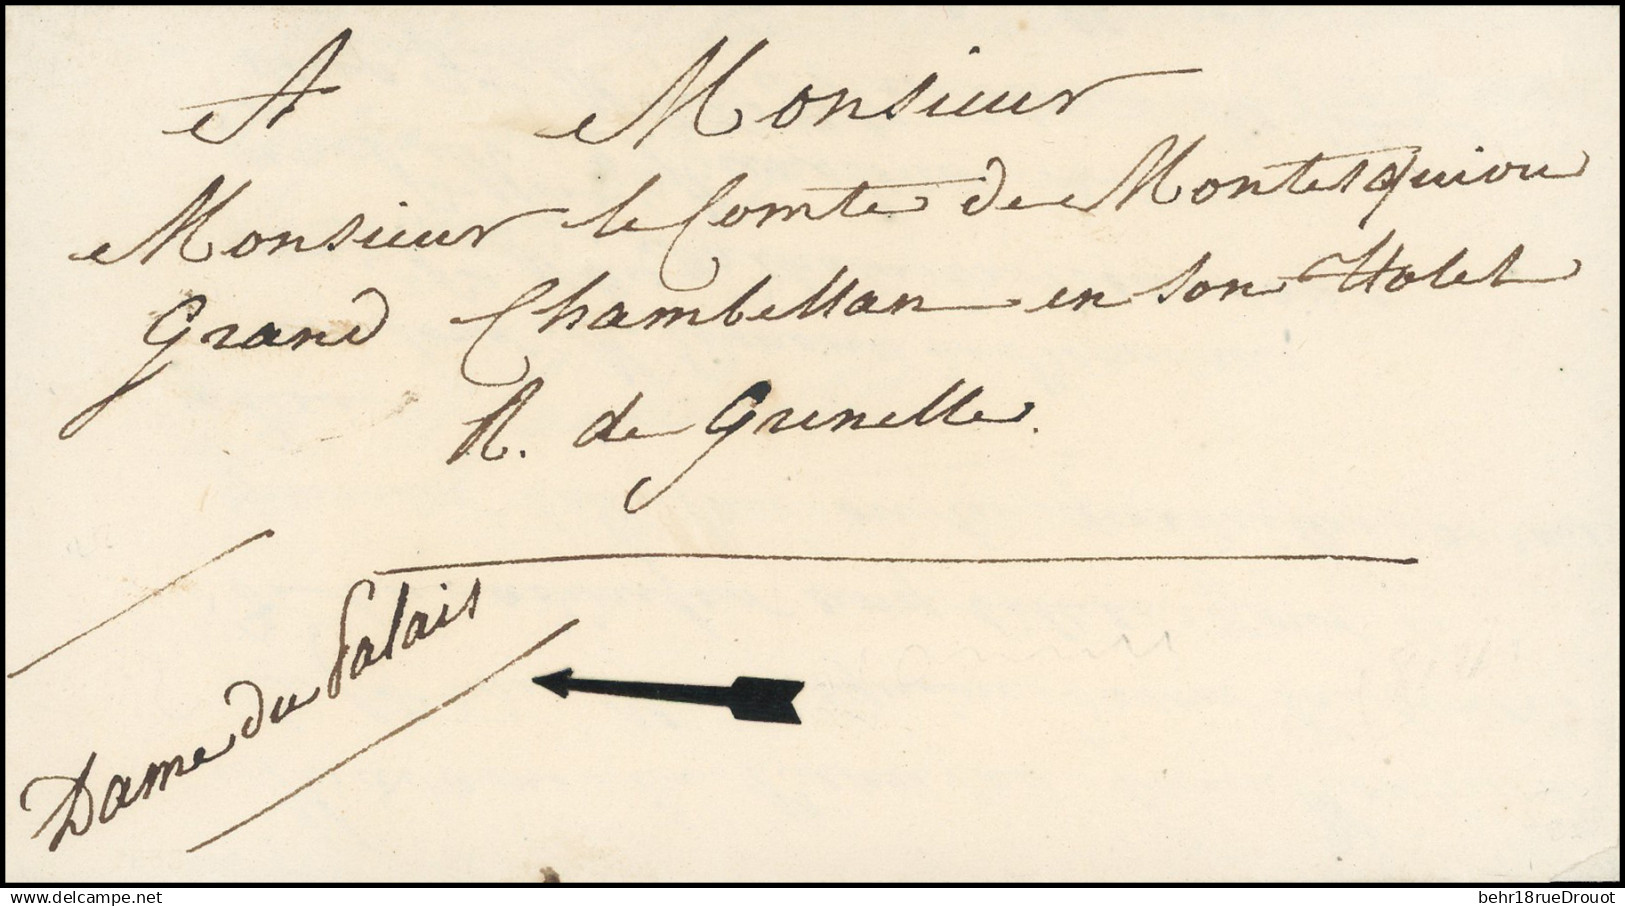 A Monsieur
Monsieur le Comte de Montesquiou
Grand Chambellan en son Hotel
R. de Grenelle.
Dame du Palais
delcampe.net
behr18rueDrouot